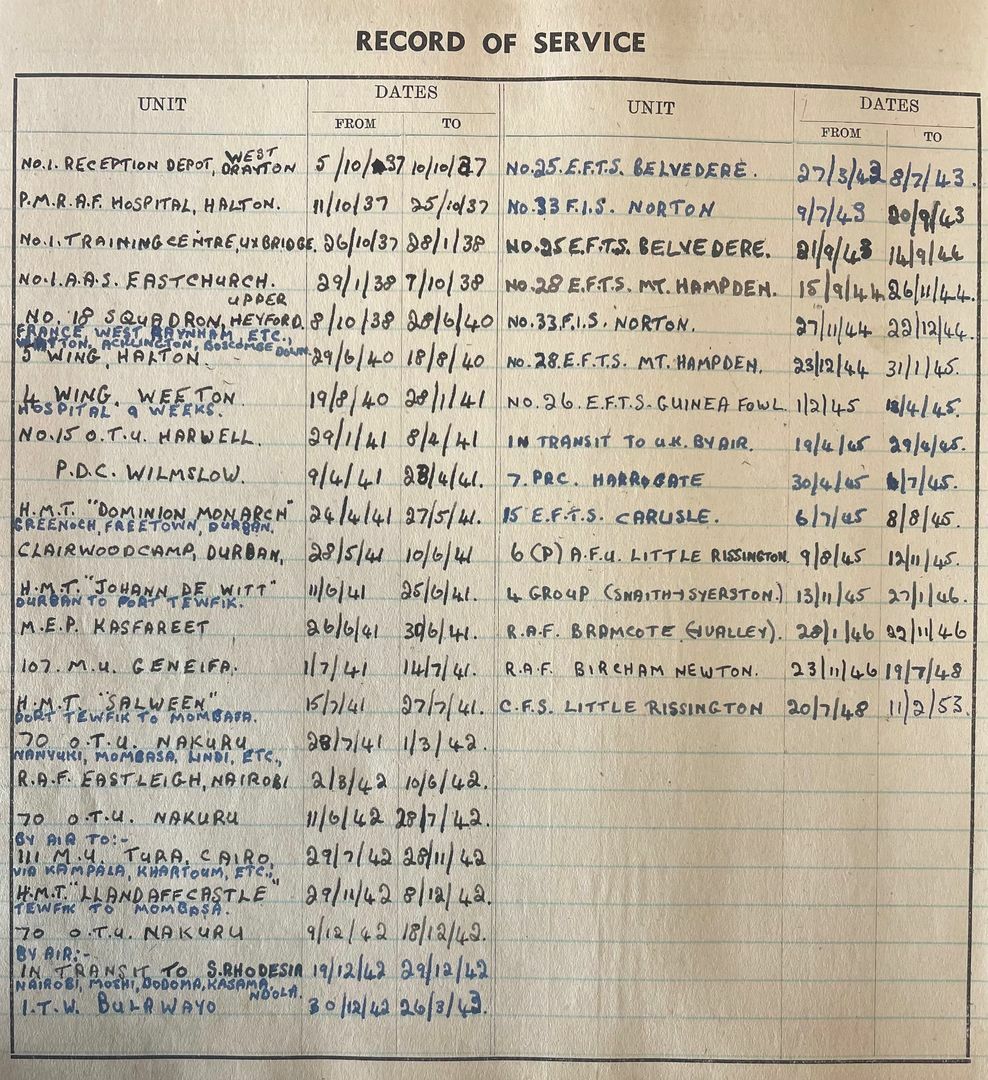 RECORD OF SERVICE
UNIT DATES FROM TO
NO.1. RECEPTION DEPOT, WEST DRAYTON 5/10/37 10/10/37
P.M.R.A.F. HOSPITAL, HALTON. 11/10/37 25/10/37
NO.1. TRAINING CENTRE, UXBRIDGE. 26/10/37 28/1/38
NO.1. A.A.S. EASTCHURCH. 29/1/38 7/10/38
NO. 18 SQUADRON, UPPER HEYFORD. 8/10/38 28/6/40
FRANCE, WEST RAYNHAM, ETC.,
WATTON, ACKLINGTON, BOSCOMBE DOWN
5 WING, HALTON. 29/6/40 18/8/40
4 WING. WEETON 19/8/40 28/1/41
HOSPITAL 9 WEEKS.
NO.15 O.T.U. HARWELL. 29/1/41 8/4/41
P.D.C. WILMSLOW. 9/4/41 23/4/41.
H.M.T. "DOMINION MONARCH" 24/4/41 27/5/41.
GREENOCH, FREETOWN, DURBAN.
CLAIRWOOD CAMP, DURBAN, 28/5/41 10/6/41
H.M.T. "JOHANN DE WITT" 11/6/41 25/6/41.
DURBAN TO PORT TEWFIK.
M.E.P. KASFAREET 26/6/41 30/6/41.
107. M.U. GENEIFA. 1/7/41 14/7/41.
H.M.T. "SALWEEN" 15/7/41 27/7/41.
PORT TEWFIK TO MOMBASA.
70 O.T.U. NAKURU 28/7/41 1/3/42.
NANYUKI, MOMBASA, LINDI, ETC.,
R.A.F. EASTLEIGH, NAIROBI 2/3/42 10/6/42.
70 O.T.U. NAKURU 11/6/42 28/7/42.
BY AIR TO:-
111 M.U. TURA, CAIRO, 29/7/42 28/11/42
VIA KAMPALA, KHARTOUM, ETC.,
H.M.T. "LLANDAFF CASTLE" 29/11/42 8/12/42.
TEWFIK TO MOMBASA.
70 O.T.U. NAKURU 9/12/42 18/12/42.
BY AIR:-
IN TRANSIT TO S.RHODESIA 19/12/42 29/12/42
NAIROBI, MOSHI, DODOMA, KASAMA, NDOLA.
I.T.W. BULAWAYO 30/12/42 26/3/43.
UNIT DATES FROM TO
NO.25. E.F.T.S. BELVEDERE. 27/3/43 8/7/43.
NO.33 F.I.S. NORTON 9/7/43 20/9/43
NO.25 E.F.T.S. BELVEDERE. 21/9/43 14/9/44
NO.28 E.F.T.S. MT. HAMPDEN. 15/9/44 26/11/44.
NO.33.F.I.S. NORTON. 27/11/44 22/12/44.
NO.28.E.F.T.S. MT. HAMPDEN. 23/12/44 31/1/45.
NO.26. E.F.T.S. GUINEA FOWL. 1/2/45 18/4/45.
IN TRANSIT TO U.K. BY AIR. 19/4/45 29/4/45.
7. PRC. HARROGATE 30/4/45 /7/45.
15 E.F.T.S. CARLISLE. 6/7/45 8/8/45.
6 (P) A.F.U. LITTLE RISSINGTON. 9/8/45 12/11/45.
4 GROUP (SNAITH → SYERSTON.) 13/11/45 27/1/46.
R.A.F. BRAMCOTE 28/1/46 22/11/46
R.A.F. BIRCHAM NEWTON. 23/11/46 19/7/48
C.F.S. LITTLE RISSINGTON 20/7/48 11/2/53.